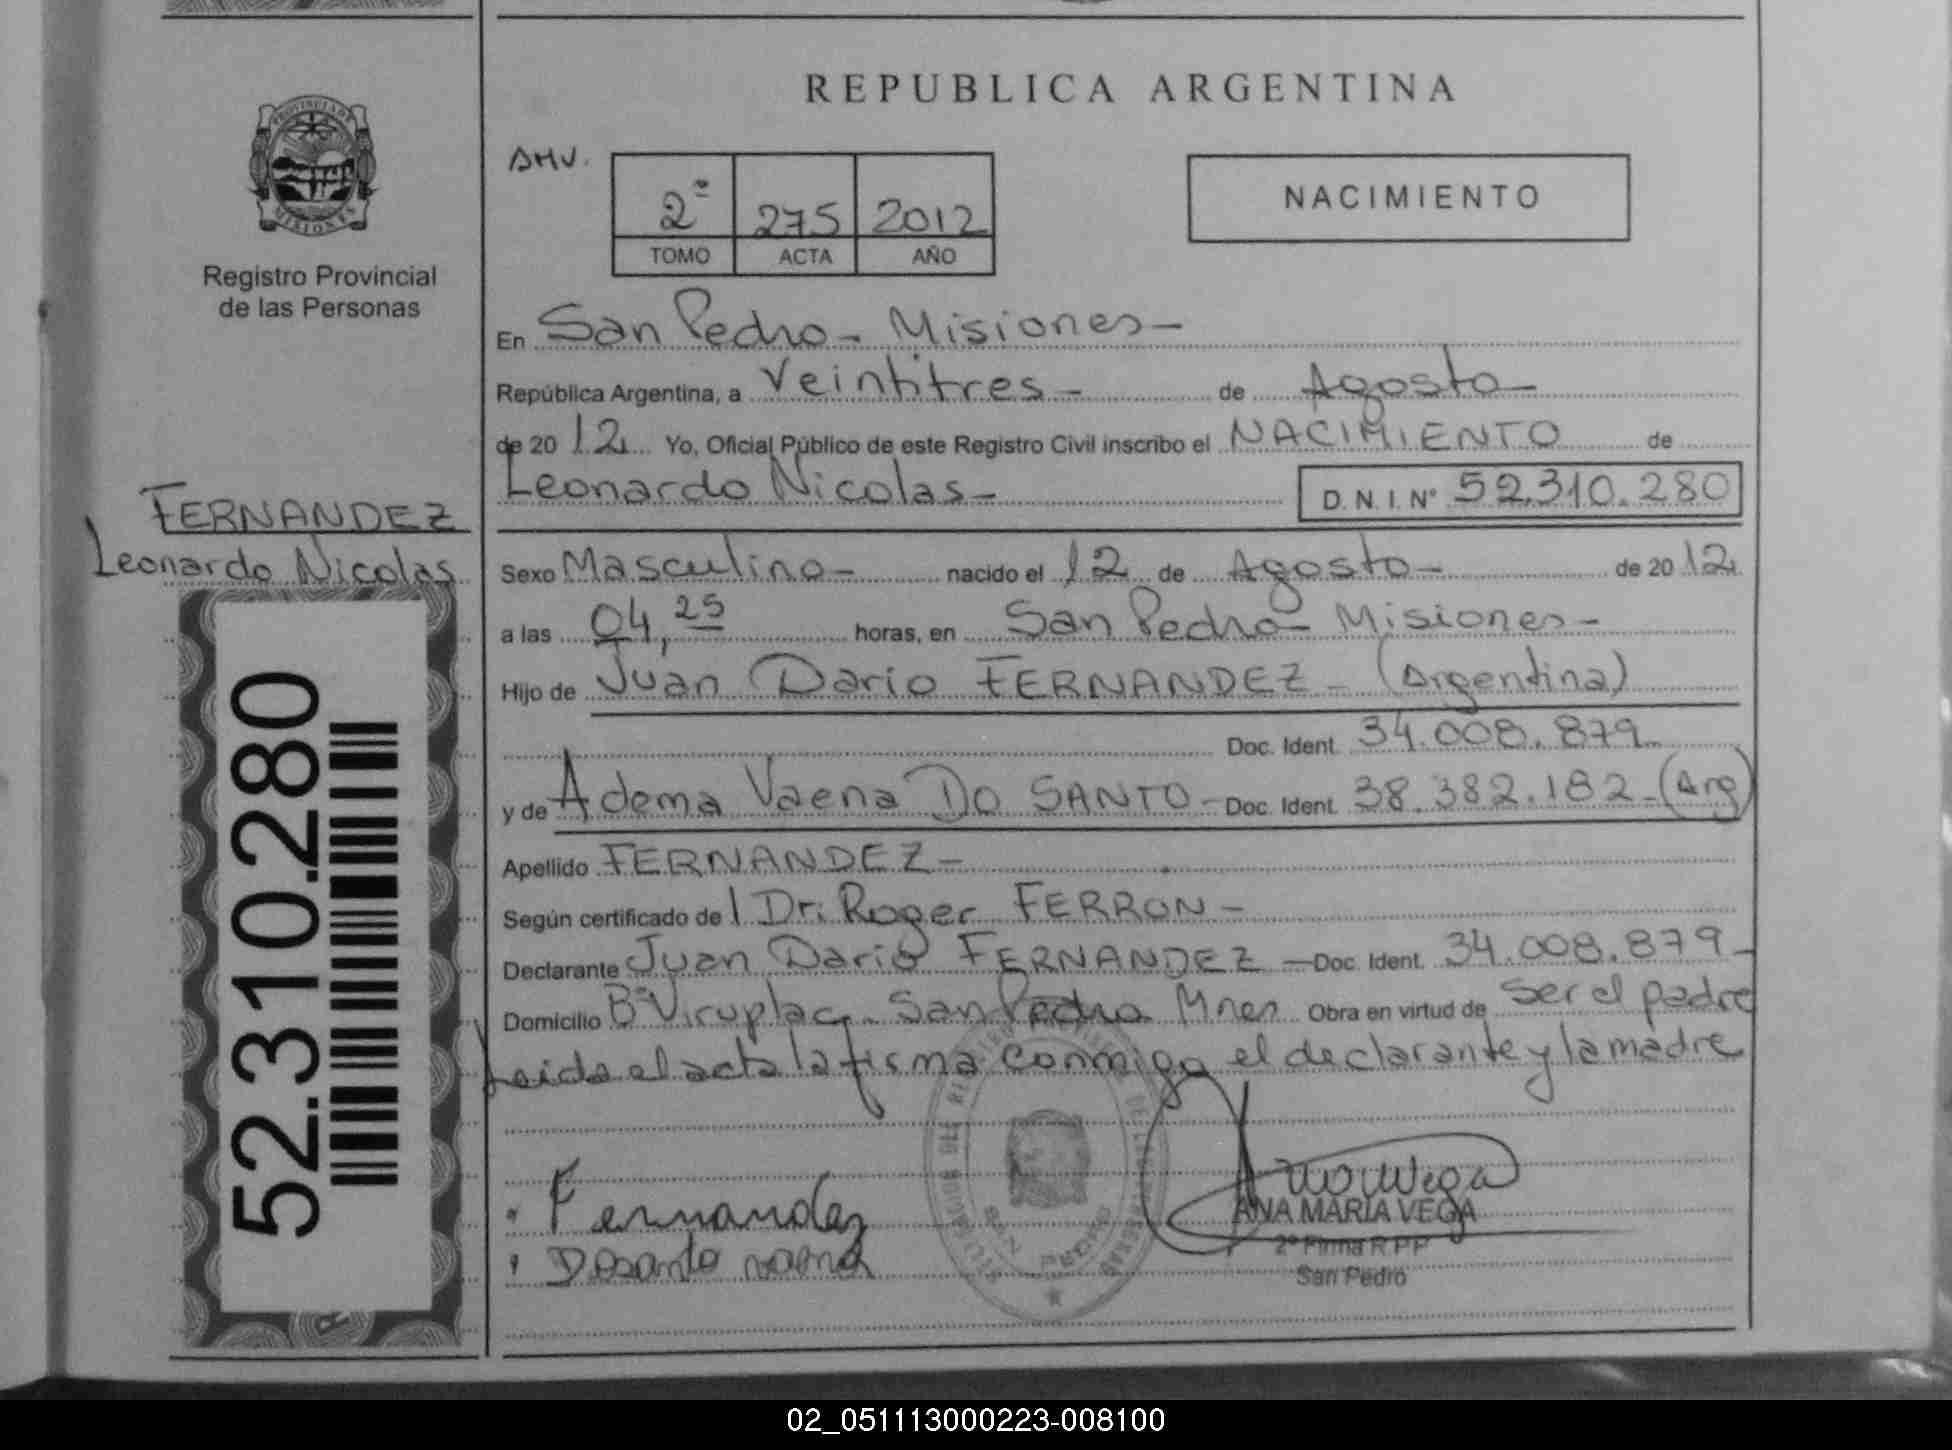 REPUBLICA ARGENTINA
PROVINCIA DE
MISIONES
Registro Provincial
de las Personas
AMV.
2º 275 2012
TOMO ACTA AÑO
NACIMIENTO
En San Pedro - Misiones -
República Argentina, a Veintitres - de Agosto -
de 20 12 Yo, Oficial Público de este Registro Civil inscribo el NACIMIENTO de
Leonardo Nicolas - D.N.I. Nº 52.310.280
FERNANDEZ
Leonardo Nicolas
Sexo Masculino - nacido el 12 de Agosto - de 20 12
a las 04,25 horas, en San Pedro - Misiones -
Hijo de Juan Dario FERNANDEZ - (Argentina)
Doc. Ident. 34.008.879
y de Adema Vaena Do SANTO - Doc. Ident. 38.382.182 - (Arg)
Apellido FERNANDEZ -
Según certificado de l Dr: Roger FERRON -
Declarante Juan Dario FERNANDEZ - Doc. Ident. 34.008.879 -
Domicilio Bº Viruplac - San Pedro Mnes Obra en virtud de ser el padre
Leida el acta la firma conmigo el declarante y la madre
52.310.280
Fernandez
Dosanto vaena
SAN PEDRO
Ana M Vega
ANA MARIA VEGA
2º Firma R.P.P
San Pedro
02_051113000223-008100